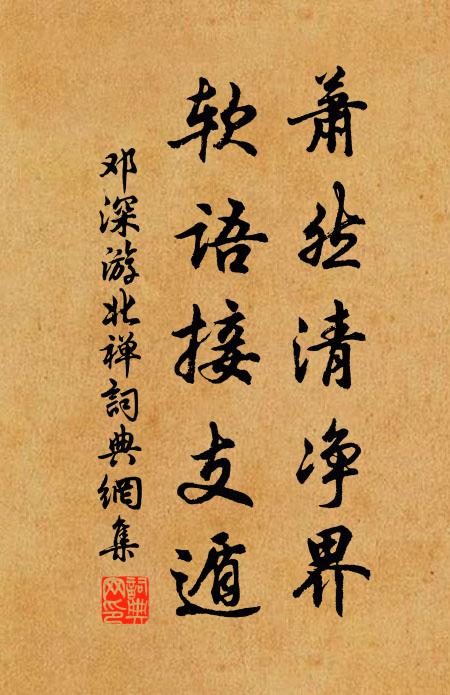 萧然清净界
软语接支遁
邓深游北禅词典網集
詞典网印